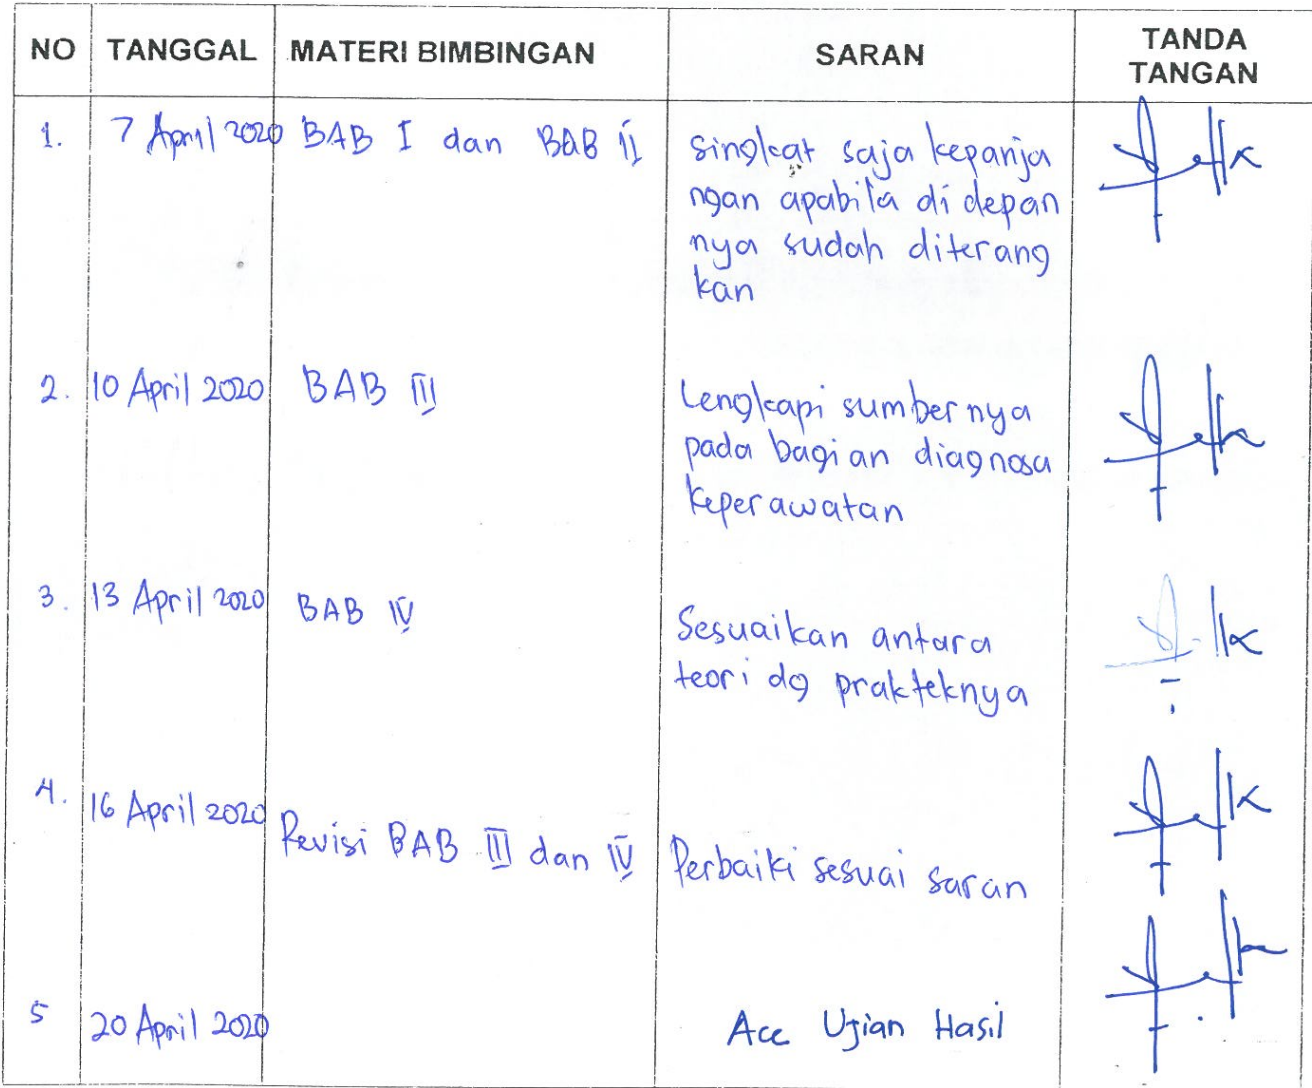 NO TANGGAL MATERI BIMBINGAN SARAN TANDA
TANGAN
1. 7 April 2020 BAB I dan BAB II singkat saja kepanja
ngan apabila di depan
nya sudah diterang
kan
2. 10 April 2020 BAB III Lengkapi sumber nya
pada bagian diagnosa
keperawatan
3. 13 April 2020 BAB IV Sesuaikan antara
teori dg prakteknya
4. 16 April 2020 Revisi BAB III dan IV Perbaiki sesuai saran
5 20 April 2020 Acc Ujian Hasil